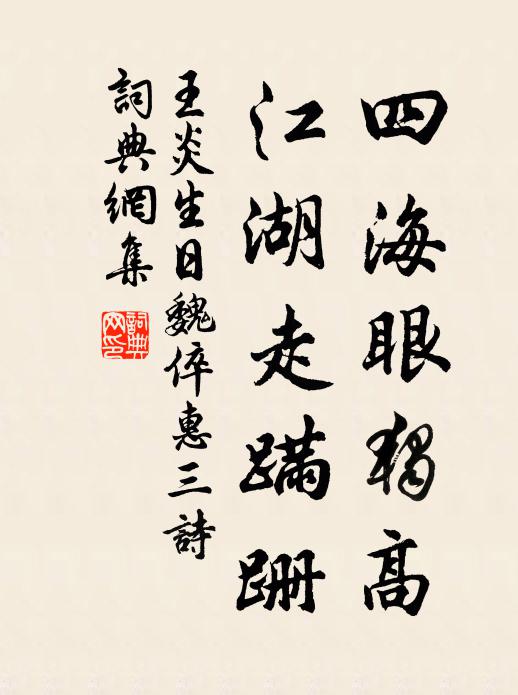 四海眼獨高
江湖走蹣跚
王炎生日魏倅惠三詩
詞典網集
詞典網印